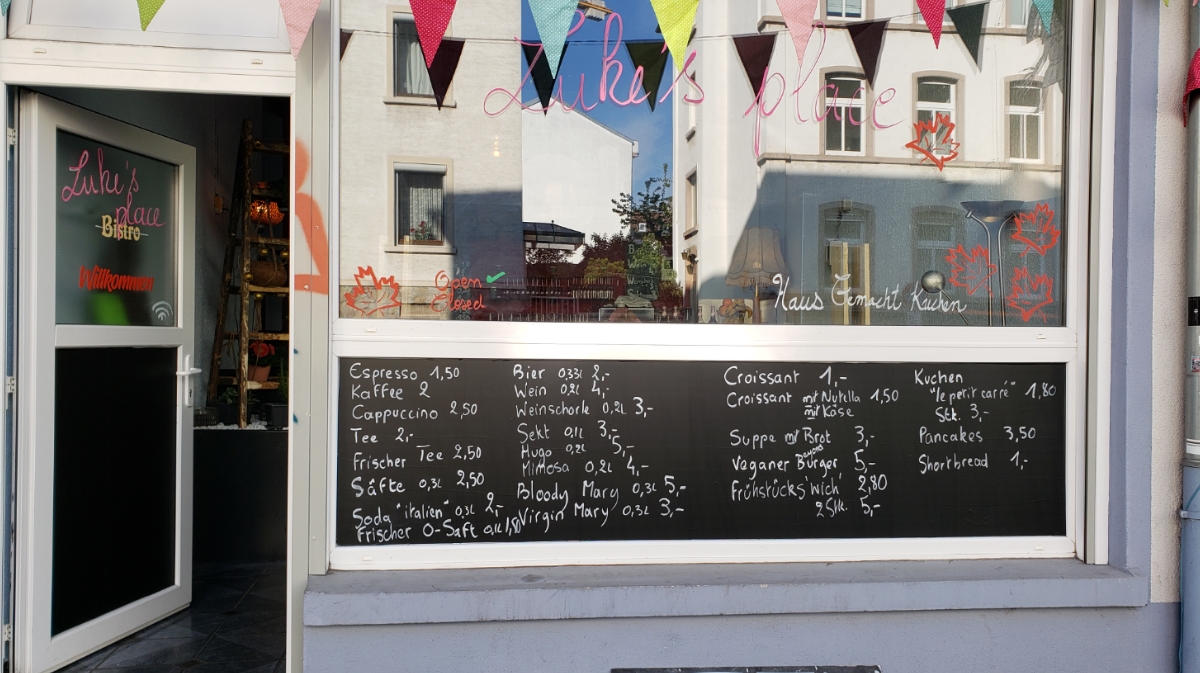 Luke's place
Luke's
place
Bistro
Willkommen
Open
Closed
Haus Gemacht Kuchen
Espresso 1,50
Kaffee 2
Cappuccino 2,50
Tee 2,-
Frischer Tee 2,50
Säfte 0,3L 2,50
Soda "italien" 0,3L 2,-
Frischer O-Saft 0,1L 1,80
Bier 0,33L 2,-
Wein 0,2L 4,-
Weinschorle 0,2L 3,-
Sekt 0,1L 3,-
Hugo 0,2L 5,-
Mimosa 0,2L 4,-
Bloody Mary 0,3L 5,-
Virgin Mary 0,3L 3,-
Croissant 1,-
Croissant mit Nutella 1,50
mit Käse
Suppe mit Brot 3,-
Veganer Burger 5,-
Frühstücks'wich' 2,80
2 Stk. 5,-
Kuchen
"le petit carré" 1,80
Stk. 3,-
Pancakes 3,50
Shortbread 1,-